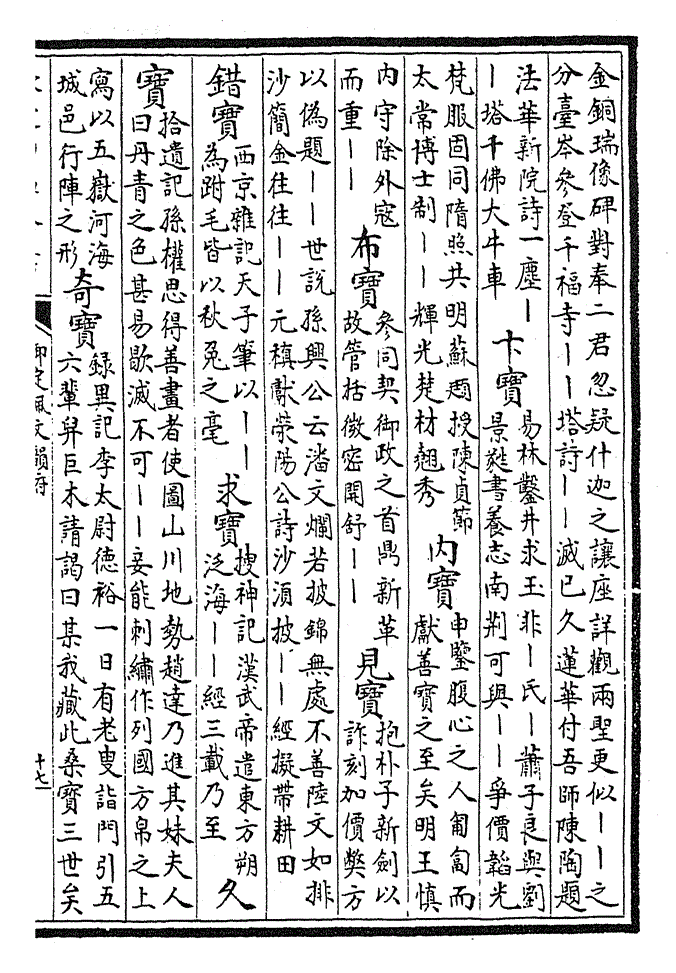 金銅瑞像碑對奉二君忽疑什迦之讓座詳觀兩聖更似丨丨之
分臺岑參登千福寺丨丨塔詩丨丨滅已久蓮華付吾師陳陶題
法華新院詩一塵丨
丨塔千佛大牛車
卞寶
易林鑿井求玉非丨氏丨蕭子良與劉
景蕤書養志南荆可與丨丨爭價韜光
梵服固同隋照共明蘇頲授陳貞節
太常博士制丨丨輝光楚材翹秀
内寶
申鑒腹心之人匍匐而
獻善寶之至矣明王慎
内守除外寇
而重丨丨
布寶
參同契御政之首鼎新革
故管括微密開舒丨丨
見寶
抱朴子新劍以
詐刻加價弊方
以偽題丨丨世說孫興公云潘文爛若披錦無處不善陸文如排
沙簡金往往丨丨元稹獻滎陽公詩沙須披丨丨經擬帶耕田
錯寶
西京雜記天子筆以丨丨
為跗毛皆以秋兔之毫
求寶
搜神記漢武帝遣東方朔
泛海丨丨經三載乃至
久
寶
拾遺記孫權思得善畫者使圖山川地勢趙達乃進其妹夫人
曰丹青之色甚易歇滅不可丨丨妾能刺繡作列國方帛之上
寫以五嶽河海
城邑行陣之形
奇寶
錄異記李太尉德裕一日有老叟詣門引五
六輩舁巨木請謁曰某我藏此桑寶三世矣
御定佩文韻府
十七